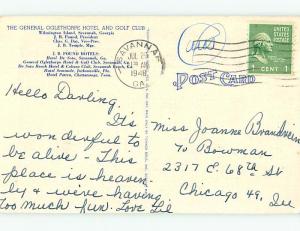 THE GENERAL OGLETHORPE HOTEL AND GOLF CLUB
Wilmington Island, Savannah, Georgia
J. B. Pound, President
Chas. G. Day, Vice-Pres.
J. B. Temple, Mgr.
J. B. POUND HOTELS
Hotel De Soto, Savannah, Ga.
General Oglethorpe Hotel & Golf Club, Savannah, Ga.
De Soto Beach Hotel & Cabana Club, Savannah Beach, Ga.
Hotel Seminole, Jacksonville, Fla.
Hotel Patten, Chattanooga, Tenn.
SAVANNAH
JUL 26
1948
GA.
UNITED STATES POSTAGE
1 CENT 1
POST CARD
Hello Darling.
It's
wonderful to
be alive - This
place is heaven-
ly & we're having
too much fun. Love Lil
Miss Joanne Brandwein
% Bowman
2317 E. 68th St
Chicago 49, Ill